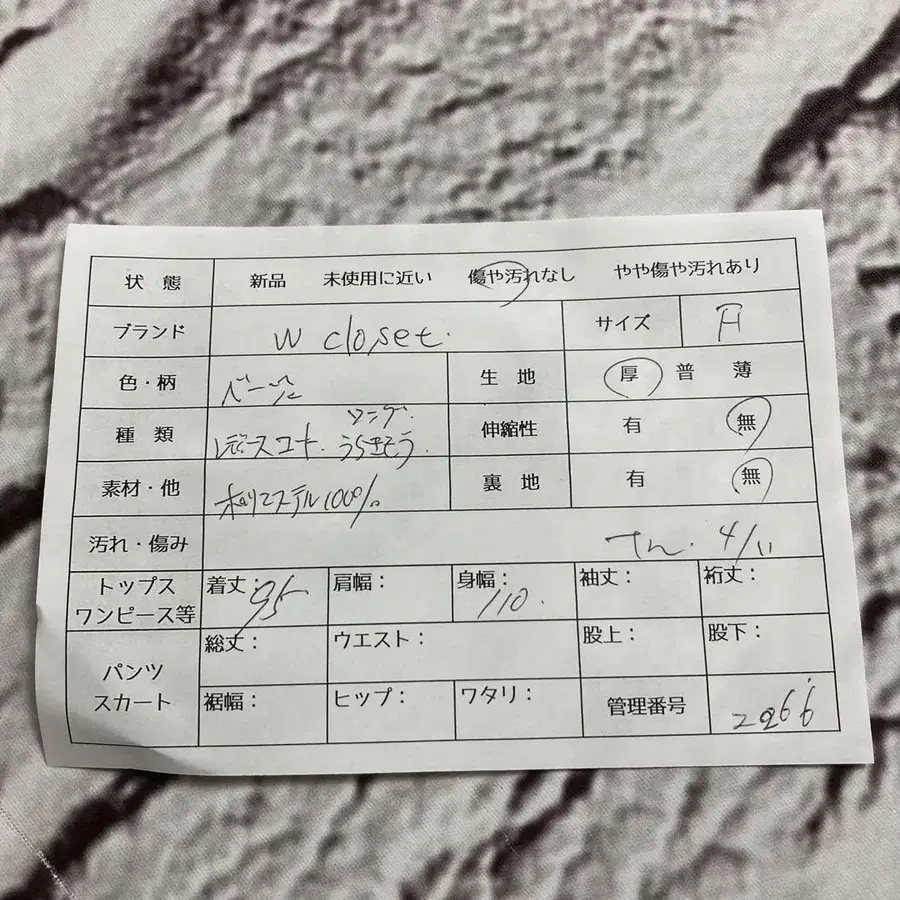 状 態 新品 未使用に近い 傷や汚れなし やや傷や汚れあり
ブランド w closet. サイズ F
色・柄 ベージュ 生 地 厚 普 薄
ロング.
種 類 レディースコート. うらきもう. 伸縮性 有 無
素材・他 ポリエステル100% 裏 地 有 無
汚れ・傷み 4/11
トップス ワンピース等 着丈: 95 肩幅: 身幅: 110. 袖丈: 裄丈:
パンツ スカート 総丈: ウエスト: 股上: 股下:
裾幅: ヒップ: ワタリ: 管理番号 2266